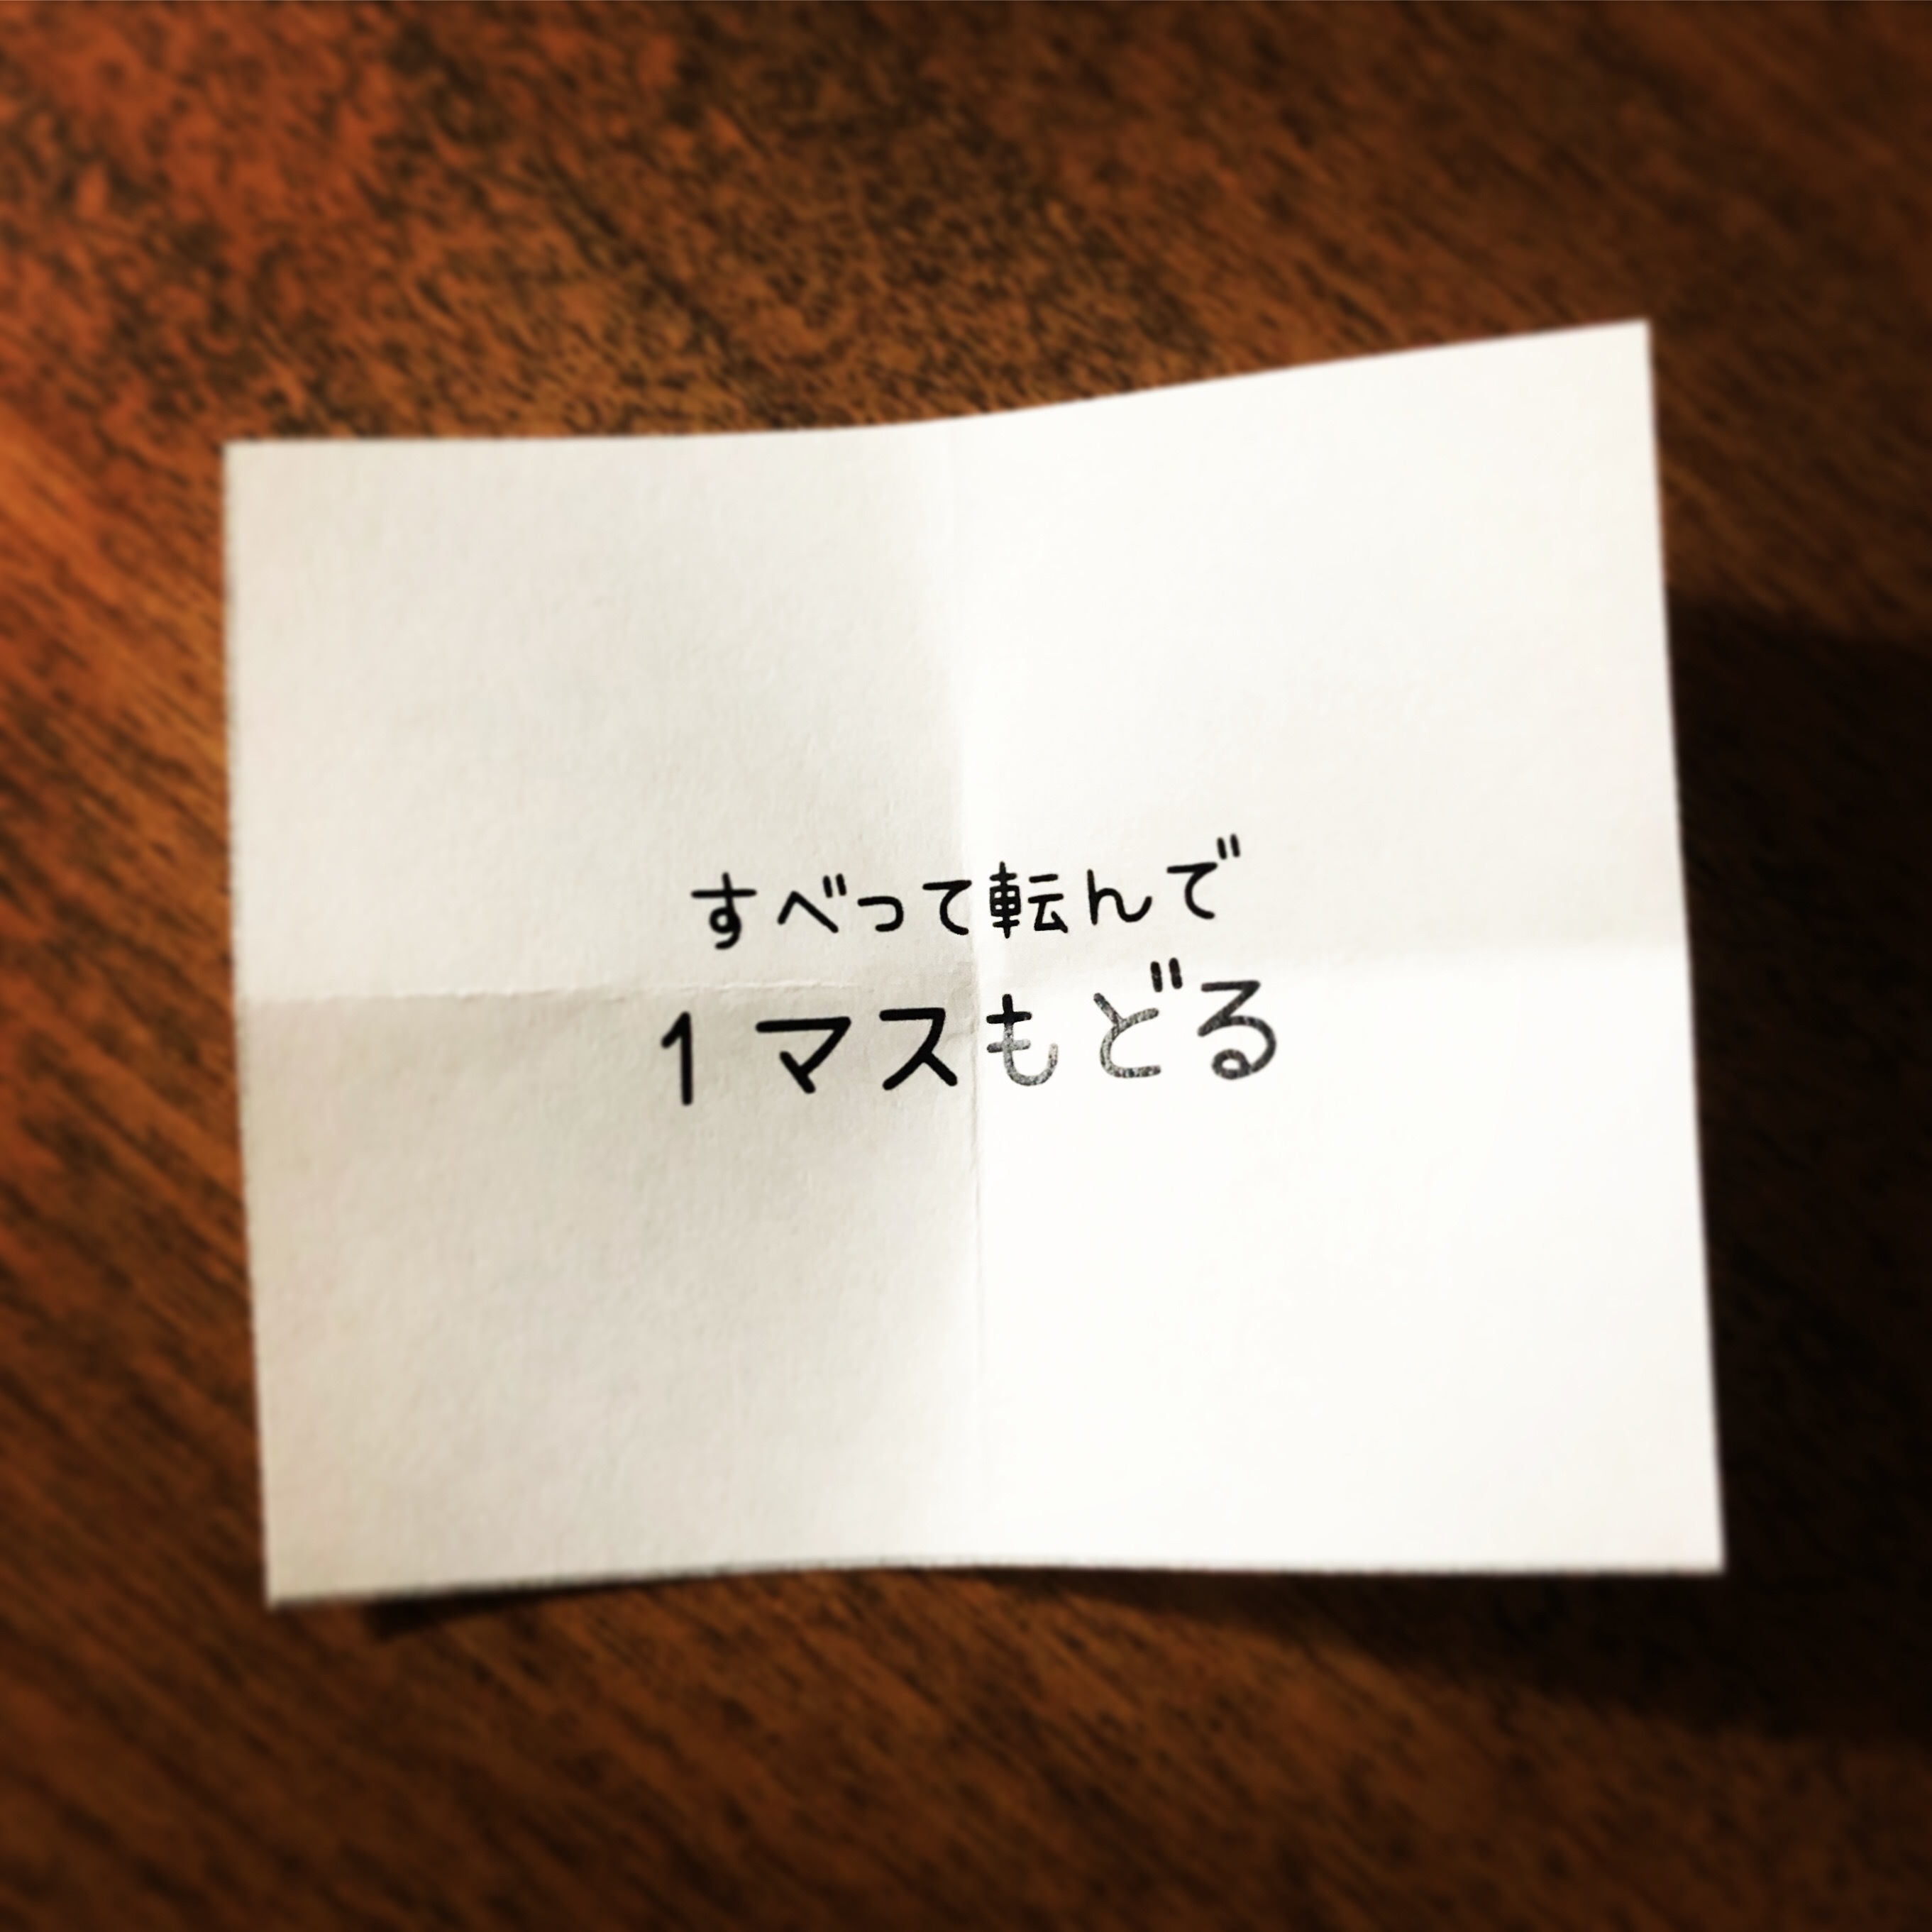 すべって転んで
1マスもどる